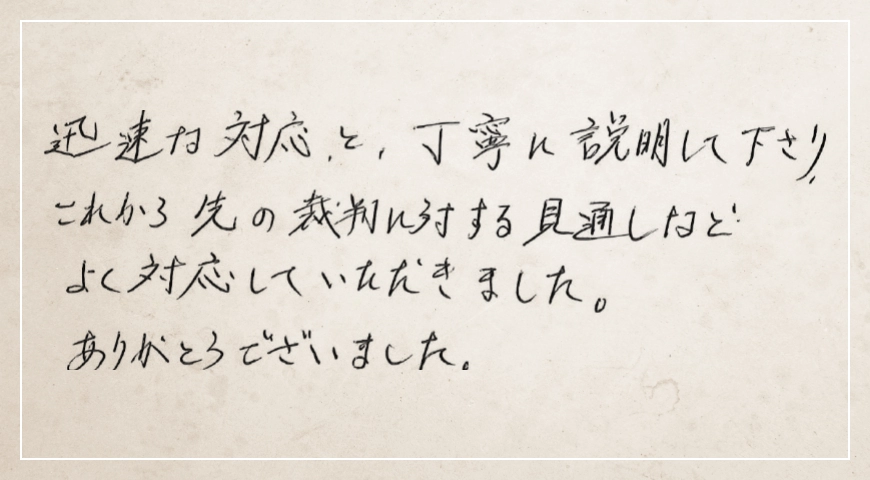 迅速な対応と、丁寧に説明して下さり、
これから先の裁判に対する見通しなど
よく対応していただきました。
ありがとうございました。